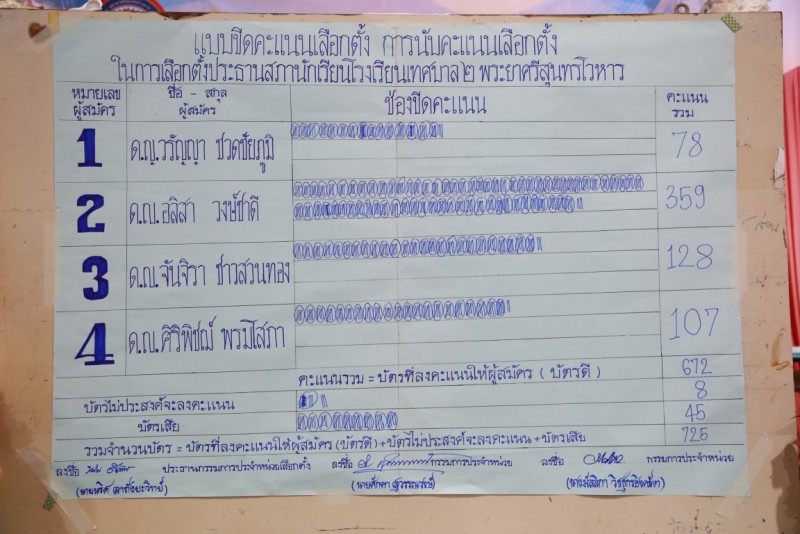 แบบขีดคะแนนเลือกตั้ง การนับคะแนนเลือกตั้ง
ในการเลือกตั้งประธานสภานักเรียนโรงเรียนเทศบาล๒ พระยาศรีสุนทรโวหาร
หมายเลขผู้สมัคร ชื่อ - สกุล ผู้สมัคร ช่องขีดคะแนน คะแนนรวม
1 ด.ญ.วรัญญา ชวดชัยภูมิ 78
2 ด.ญ.อลิสา วงษ์ชาดี 359
3 ด.ญ.จันจิรา ชาวสวนทอง 128
4 ด.ญ.ศิริพิชฌ์ พรมโสภา 107
คะแนนรวม = บัตรที่ลงคะแนนให้ผู้สมัคร ( บัตรดี ) 672
บัตรไม่ประสงค์จะลงคะแนน 8
บัตรเสีย 45
รวมจำนวนบัตร = บัตรที่ลงคะแนนให้ผู้สมัคร(บัตรดี)+บัตรไม่ประสงค์จะลงคะแนน+บัตรเสีย 725
ลงชื่อ ประธานกรรมการประจำหน่วยเลือกตั้ง ลงชื่อ กรรมการประจำหน่วย ลงชื่อ กรรมการประจำหน่วย